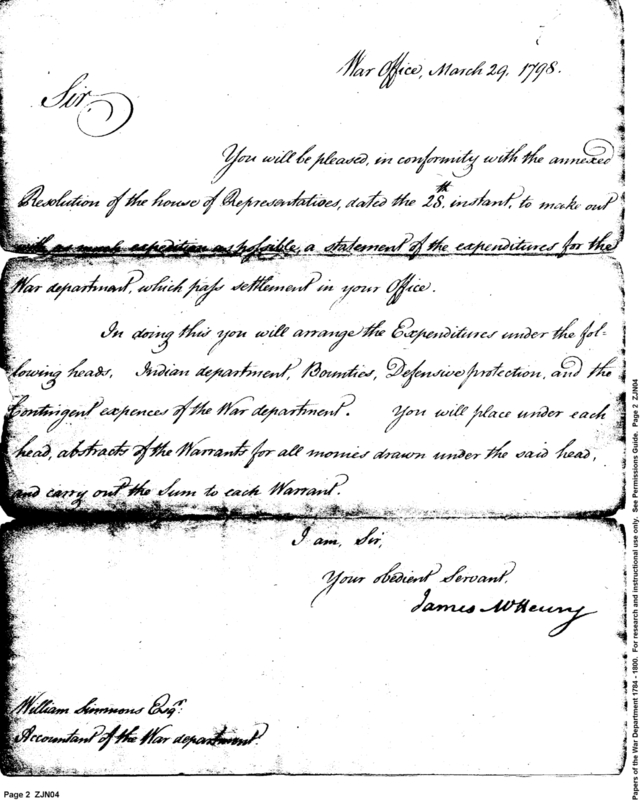 War Office, March 29, 1798.
Sir,
You will be pleased, in conformity with the annexed
Resolution of the house of Representatives, dated the 28th instant, to make out
with as much expedition as possible, a statement of the expenditures for the
War department, which pass settlement in your Office.
In doing this you will arrange the Expenditures under the fol-
lowing heads, Indian department, Bounties, Defensive protection, and the
Contingent expences of the War department. You will place under each
head, abstracts of the Warrants for all monies drawn under the said head,
and carry out the Sum to each Warrant.
I am, Sir,
Your obedient Servant,
James McHenry
William Simmons Esqr.
Accountant of the War department.
Page 2 ZJN04
Papers of the War Department 1784 - 1800. For research and instructional use only. See Permissions Guide. Page 2 ZJN04